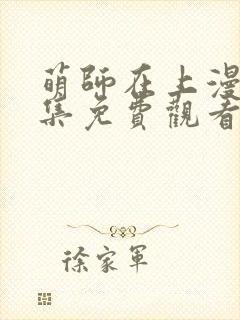 萌師在上漫
集免費觀看
徐家軍